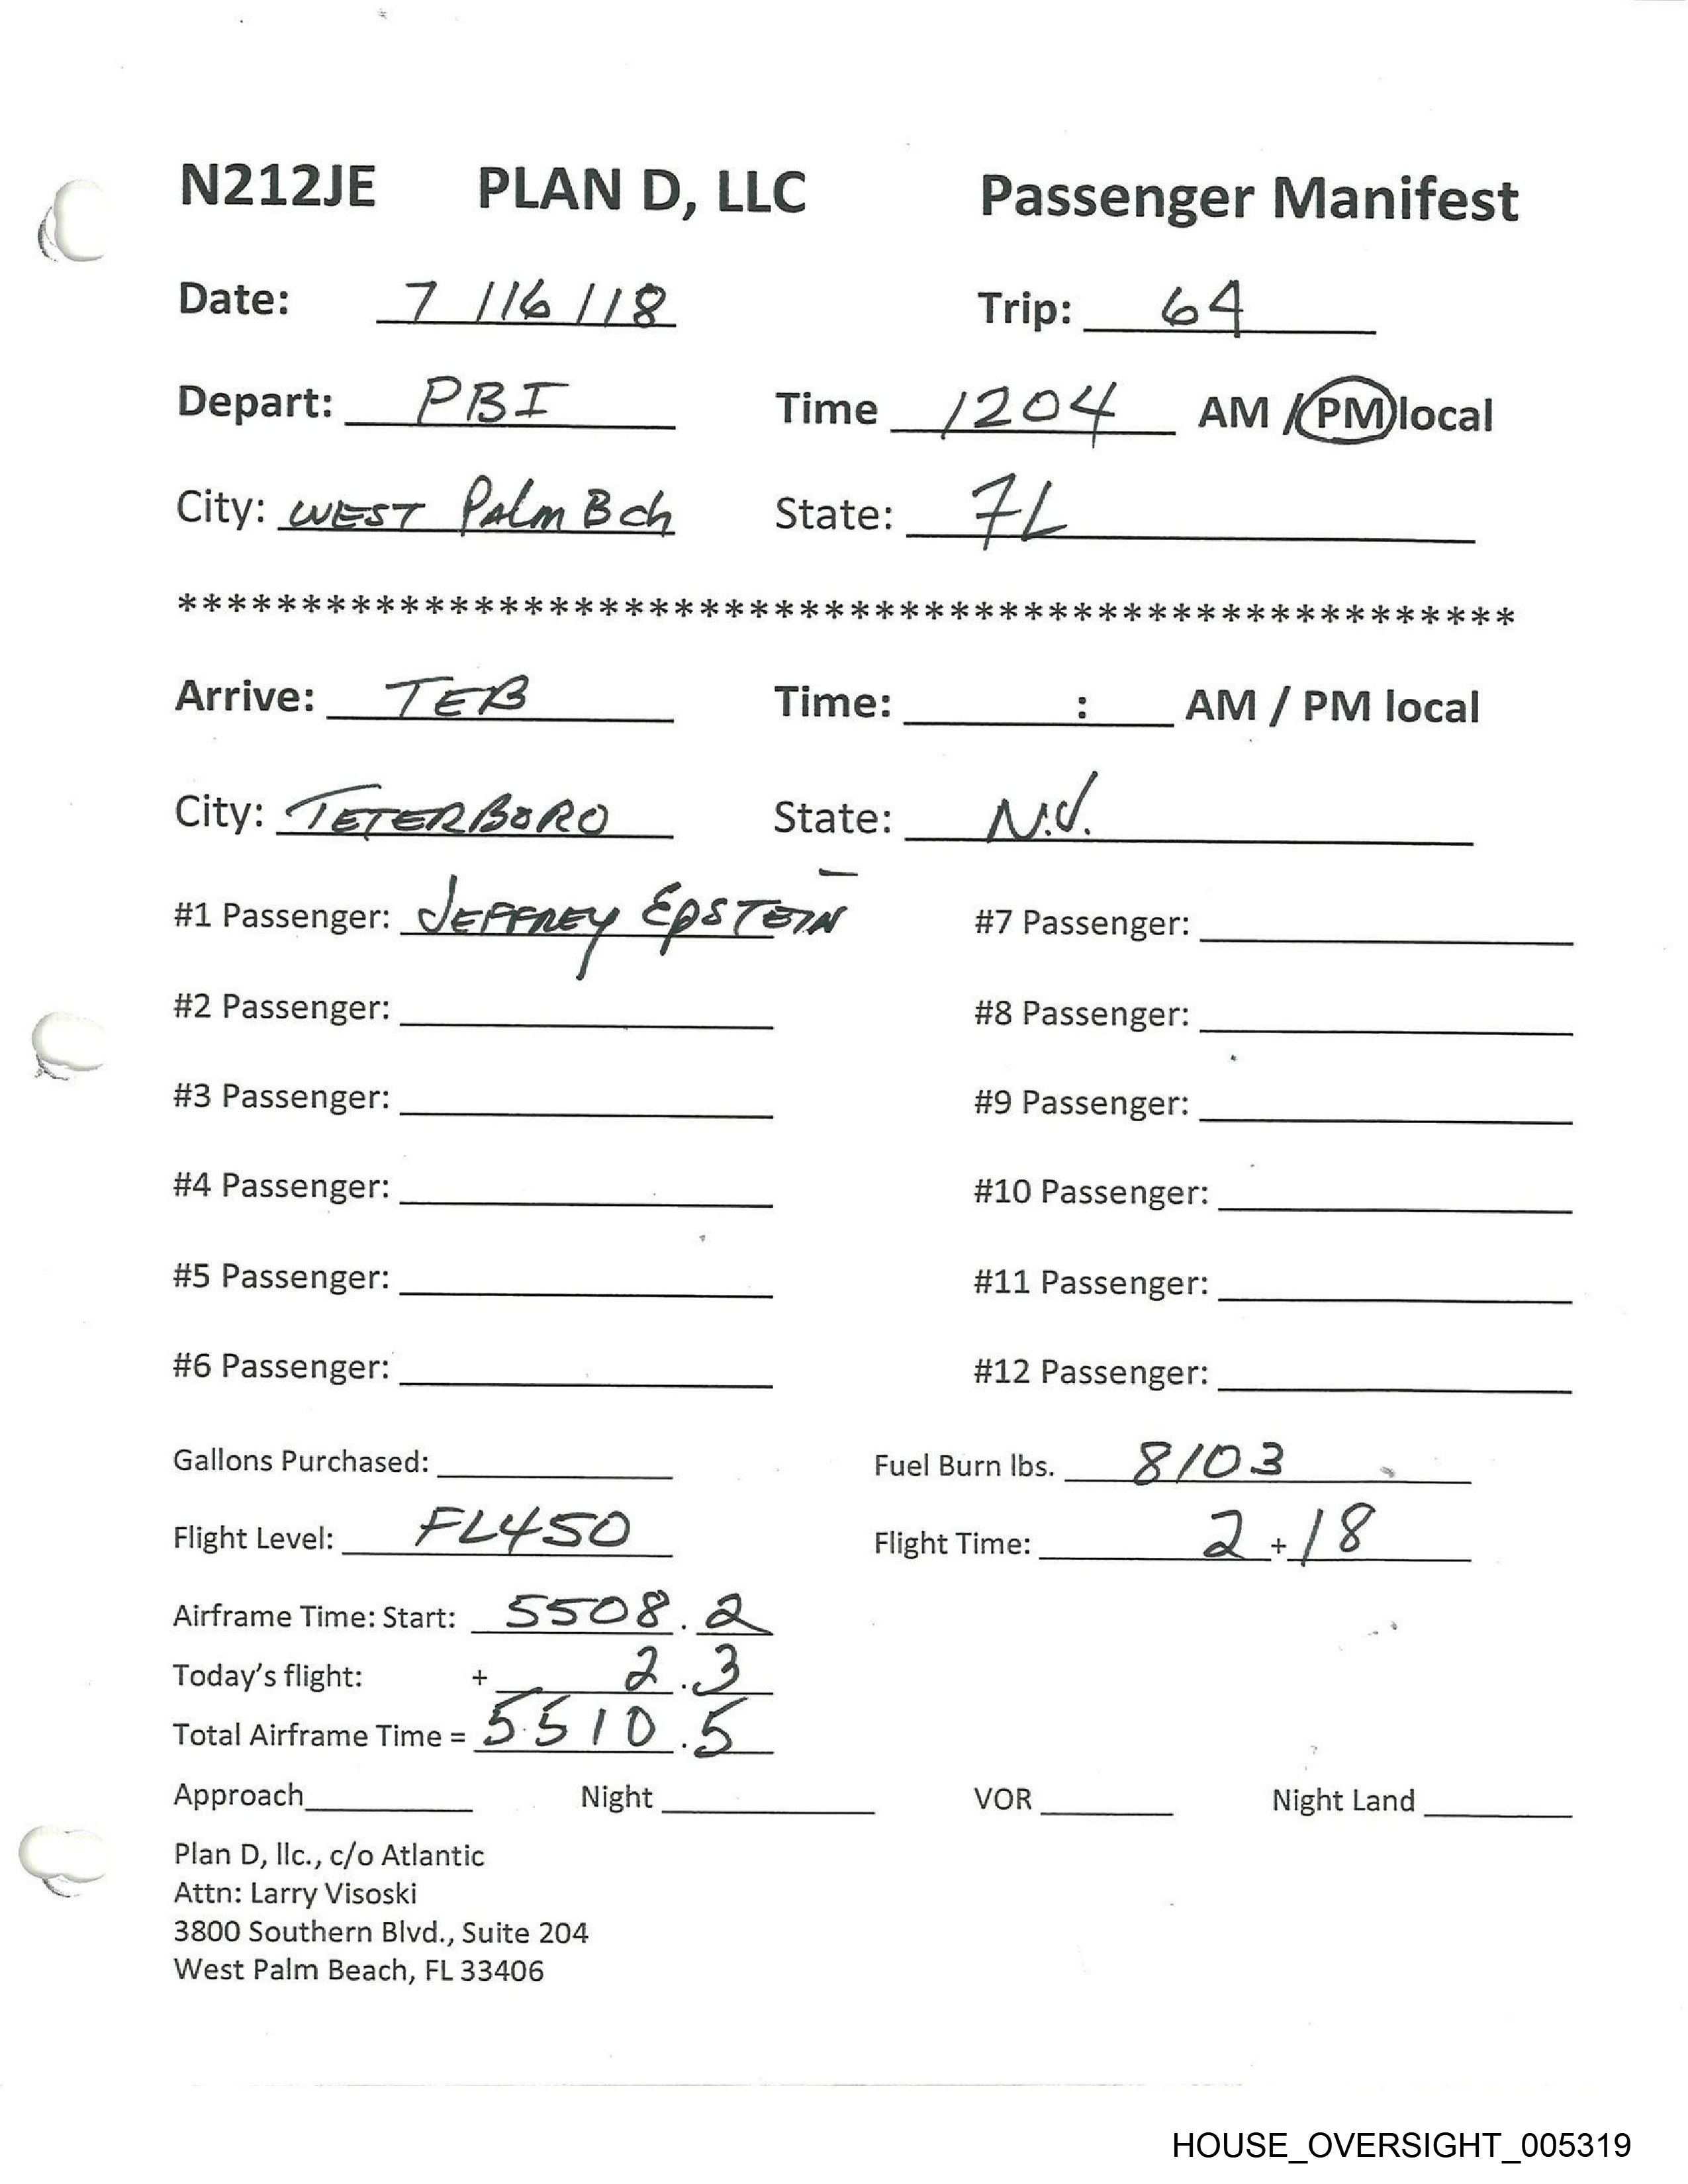 N212JE PLAN D, LLC Passenger Manifest
Date: 7 / 16 / 18 Trip: 64
Depart: PBI Time 1204 AM / PM local
City: WEST Palm Bch State: FL
******************************************************
Arrive: TEB Time: : AM / PM local
City: TETERBORO State: N.J.
#1 Passenger: JEFFREY EPSTEIN #7 Passenger:
#2 Passenger: #8 Passenger:
#3 Passenger: #9 Passenger:
#4 Passenger: #10 Passenger:
#5 Passenger: #11 Passenger:
#6 Passenger: #12 Passenger:
Gallons Purchased: Fuel Burn lbs. 8103
Flight Level: FL450 Flight Time: 2 + 18
Airframe Time: Start: 5508.2
Today's flight: + 2.3
Total Airframe Time = 5510.5
Approach Night VOR Night Land
Plan D, llc., c/o Atlantic
Attn: Larry Visoski
3800 Southern Blvd., Suite 204
West Palm Beach, FL 33406
HOUSE_OVERSIGHT_005319